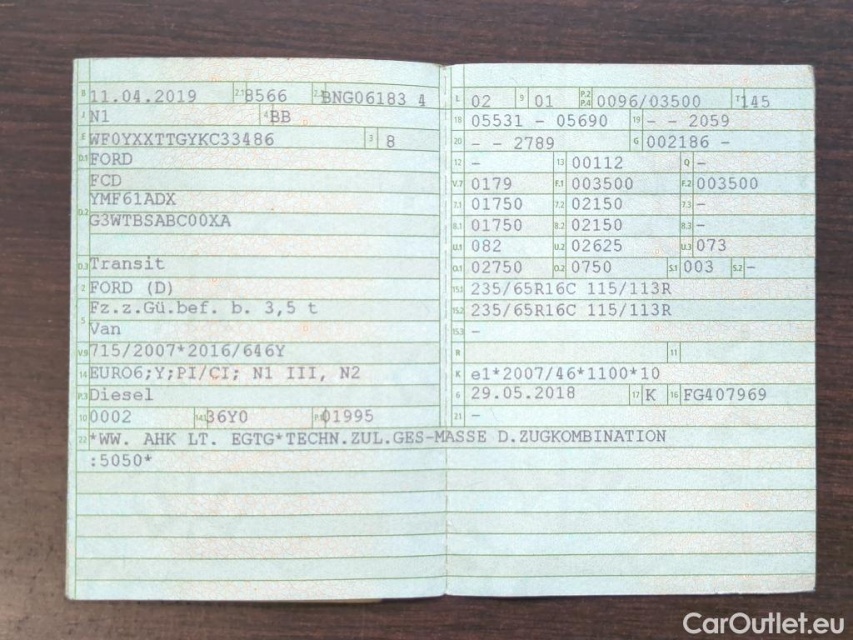 B 11.04.2019 2.1 8566 2.2 BNG06183 4
J N1 4 BB
E WF0YXXTTGYKC33486 3 8
D.1 FORD
FCD
YMF61ADX
D.2 G3WTBSABC00XA
D.3 Transit
2 FORD (D)
Fz.z.Gü.bef. b. 3,5 t
5 Van
V.9 715/2007*2016/646Y
14 EURO6;Y;PI/CI; N1 III, N2
P.3 Diesel
10 0002 14.1 36Y0 P.1 01995
22 *WW. AHK LT. EGTG*TECHN.ZUL.GES-MASSE D.ZUGKOMBINATION
:5050*
L 02 9 01 P.2 P.4 0096/03500 T 145
18 05531 - 05690 19 - - 2059
20 - - 2789 G 002186 -
12 - 13 00112 Q -
V.7 0179 F.1 003500 F.2 003500
7.1 01750 7.2 02150 7.3 -
8.1 01750 8.2 02150 8.3 -
U.1 082 U.2 02625 U.3 073
O.1 02750 O.2 0750 S.1 003 S.2 -
15.1 235/65R16C 115/113R
15.2 235/65R16C 115/113R
15.3 -
R 11
K e1*2007/46*1100*10
6 29.05.2018 17 K 16 FG407969
21 -
CarOutlet.eu